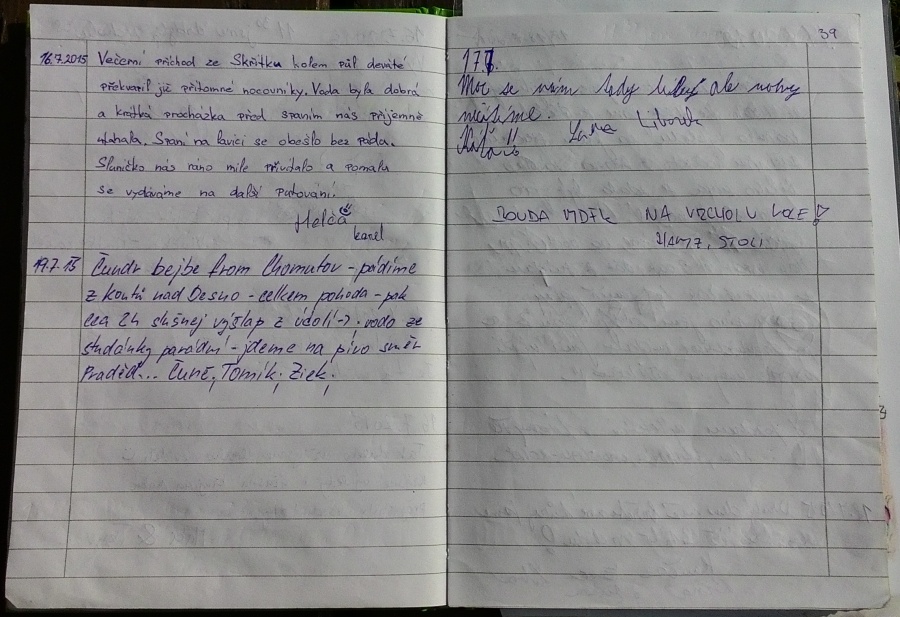 16.7.2015 Večerní příchod ze Skřítku kolem půl deváté
překvapil již přítomné nocovníky. Voda byla dobrá
a krátká procházka před spaním nás příjemně
ulahala. Spaní na lavici se obešlo bez pádu.
Sluníčko nás ráno mile přivítalo a pomalu
se vydáváme na další putování.
Helča
Karel
19.7.15 Čundr bejbe from Chomutov - pádíme
z Koutů nad Desno - celkem pohoda - pak
cca 2h slušnej výšlap z údolí :-) , voda ze
studánky parádní - jdeme na pivo směr
Praděd... Čuně, Tomík, Ziek.
39
177.
Moc se nám tady líbí ale nohy
necítíme.
Liborek
BOUDA NA VRCHOLU
STOLI